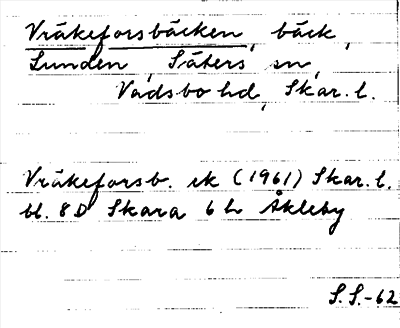 Vråkeforsbäcken, bäck,
Lunden, Säters sn,
Vadsbo hd, Skar. l.
Vråkeforsb. ek (1961) Skar. l.
bl. 8D Skara 6h Åkleby
S.S.-62